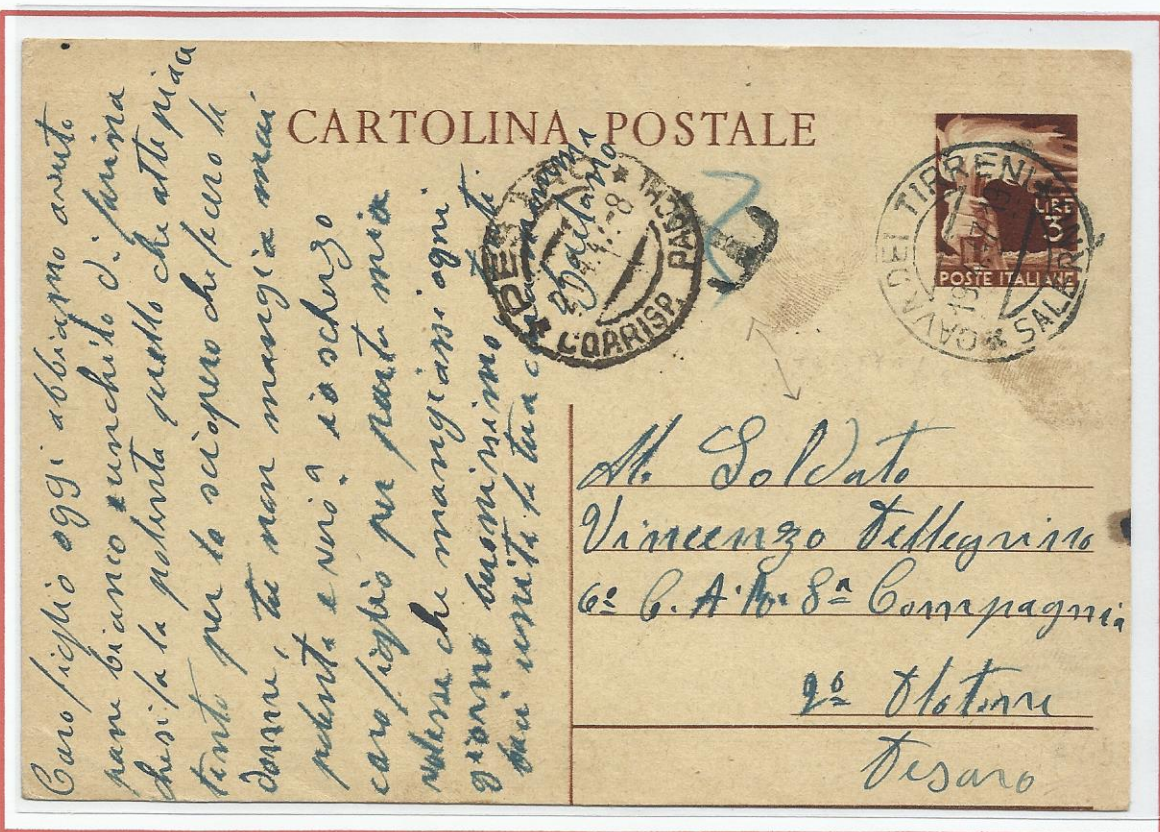 CARTOLINA POSTALE
LIRE
3
POSTE ITALIANE
CAVA DEI TIRRENI
SALERNO
CORRISP. PACCHI
Al Soldato
Vincenzo Pellegrino
6º C. A. R. 8ª Compagnia
2º Plotone
Pesaro
Caro figlio oggi abbiamo avuto
pane bianco e un chilo di farina
che si fa la polenta quello che atte piace
tanto per lo sciopero che fecero le
donne, tu non mangia mai
polenta e vero io scherzo
caro figlio per parte mia
volesse che mangiassi ogni
giorno buonissimo ti
baci unita la tua
mamma
Gaetano